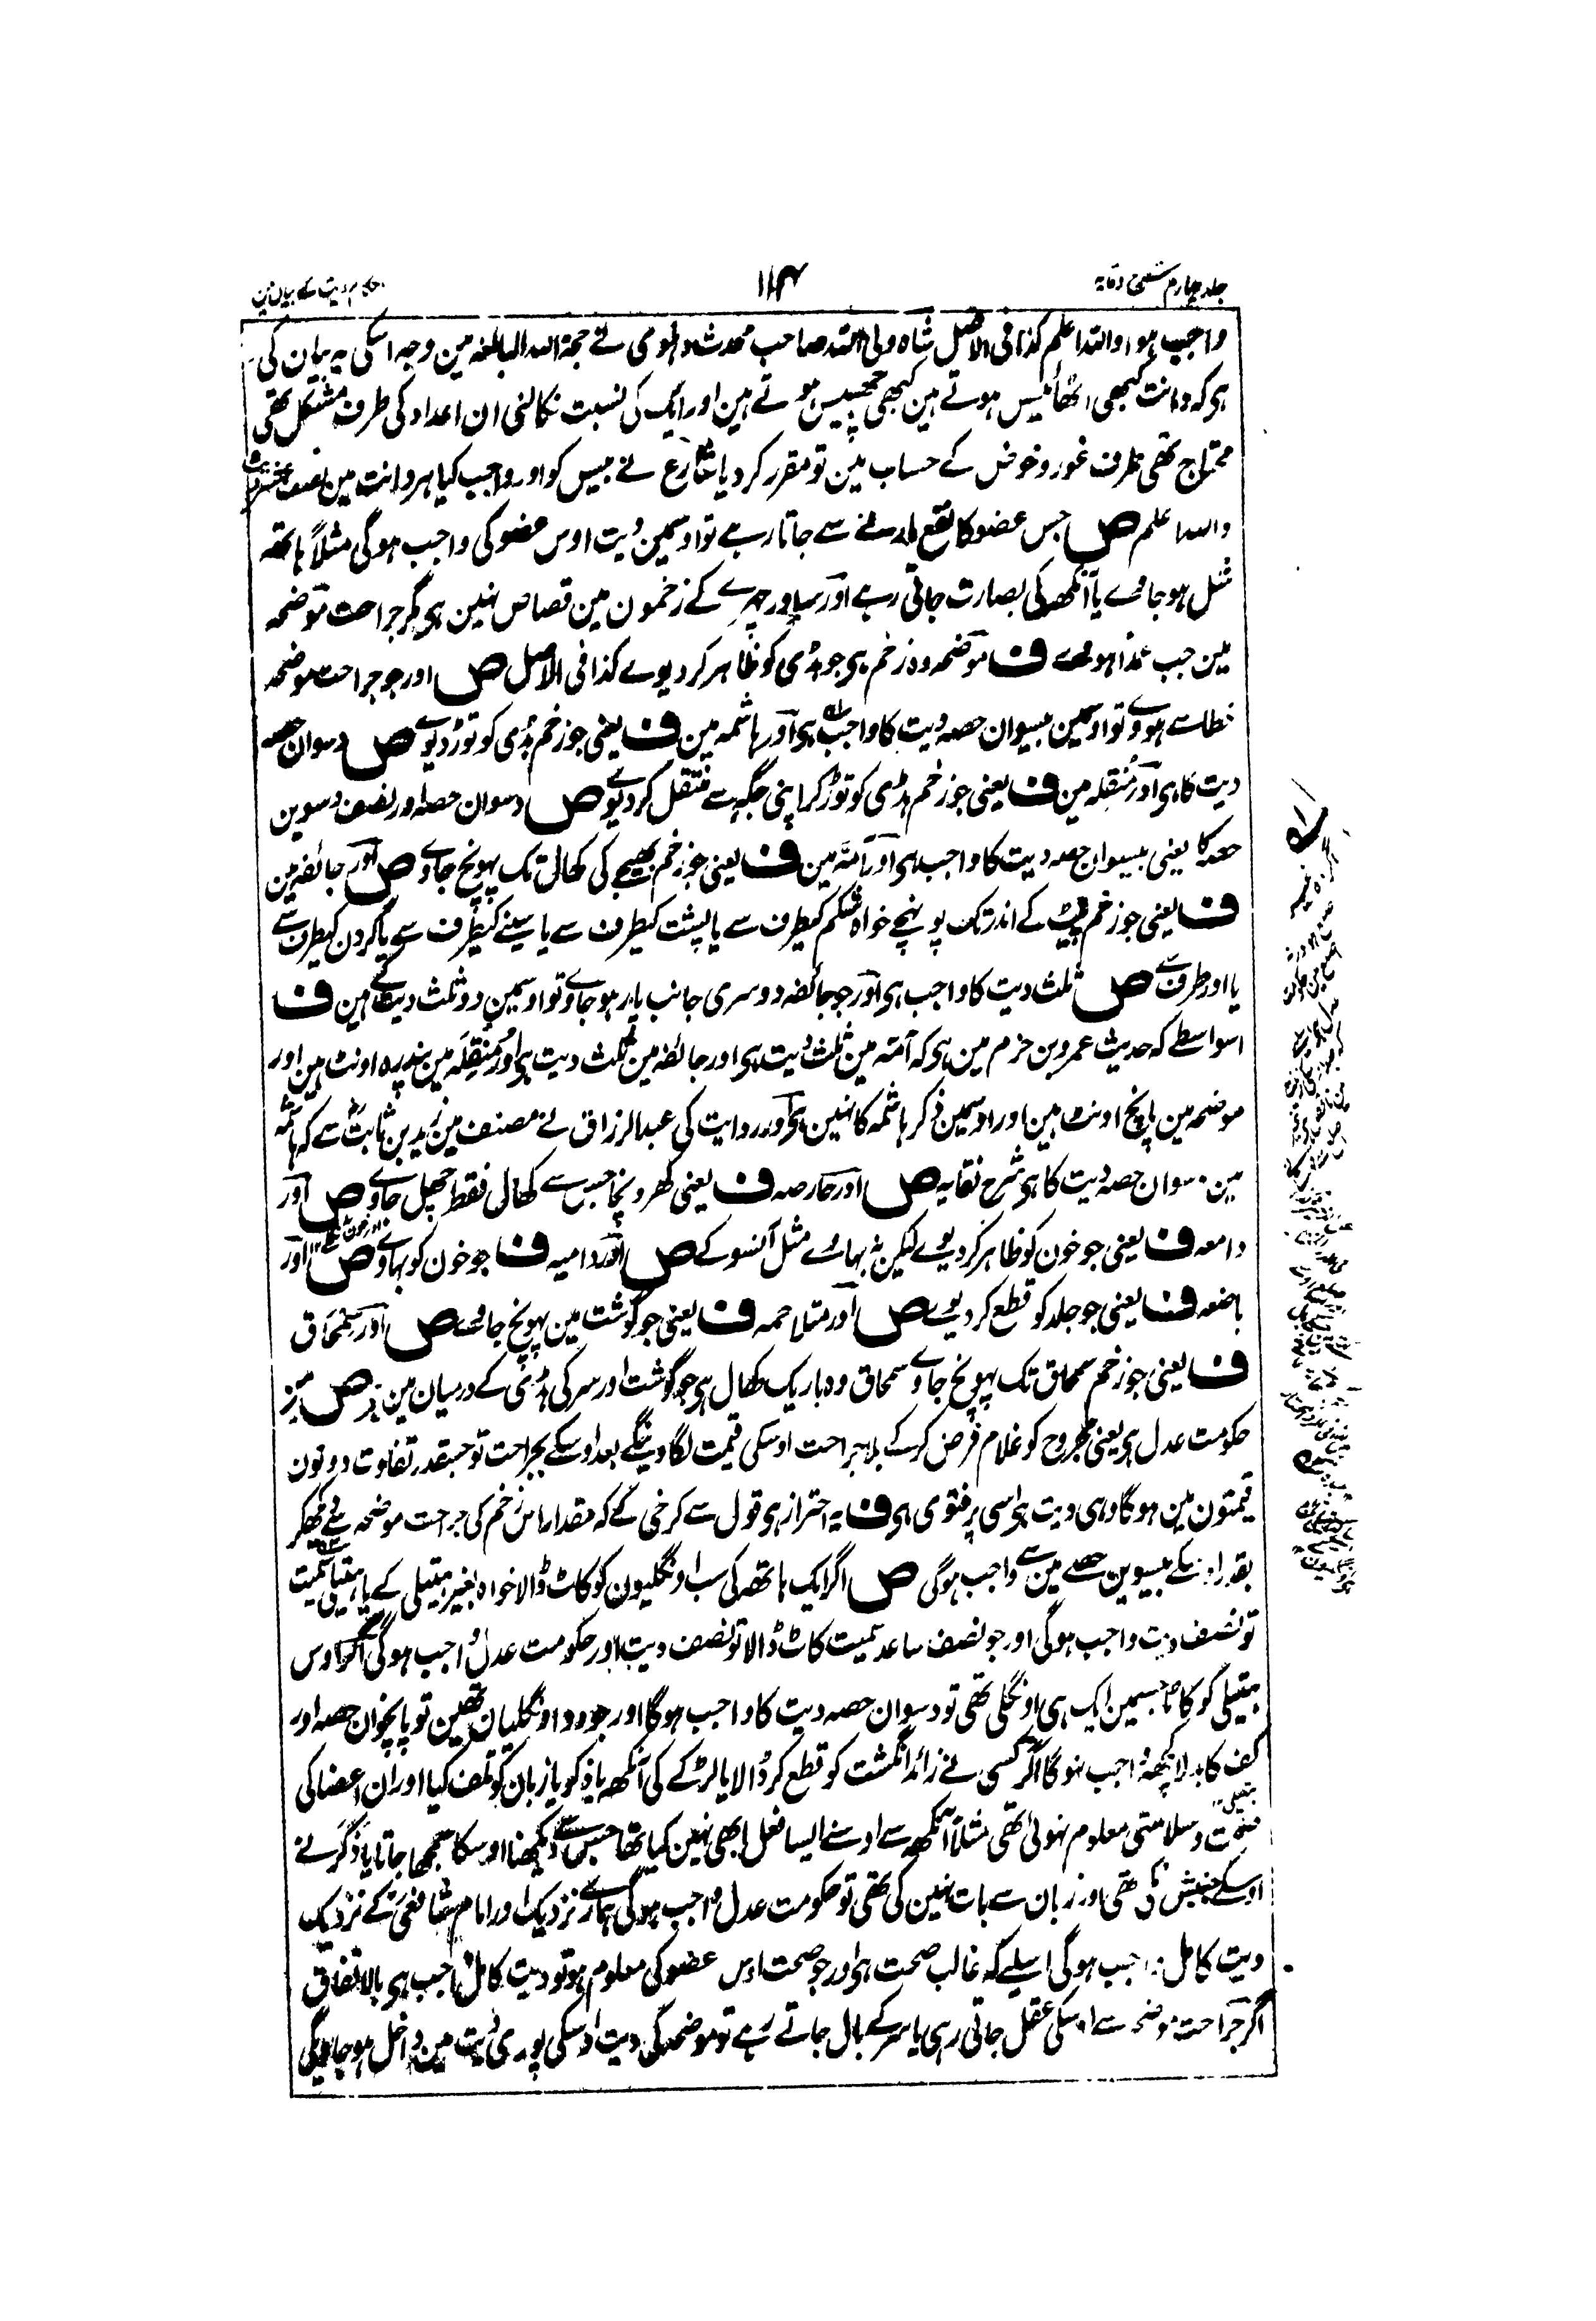 جلد چہارم شرح وقایہ
۱۱۴
احکام دیت کے بیان مین
واجب ہوا واللہ اعلم کذا فی الاصل شاہ ولی اللہ صاحب محدث دہلوی نے حجۃ اللہ البالغہ مین وجہ اسکی یہ بیان کی
ہی کہ دانت کبھی اٹھائیس ہوتے ہین کبھی چھبیس ہوتے ہین اور ایک کی نسبت نکالنی ان اعداد کی طرف مشکل تھی
محتاج تھی طرف غور و خوض کے حساب مین تو مقرر کر دیا شارع نے بیس کو اور واجب کیا ہر دانت مین نصف عشر
واللہ اعلم ص جس عضو کا نفع مارنے سے جاتا رہے تو اوسمین دیت اوس عضو کی واجب ہوگی مثلاً ہاتھ
شل ہو جاوے یا آنکھ کی بصارت جاتی رہے اور سر اور چہرے کے زخمون مین قصاص نہین ہی مگر جراحت موضحہ
مین جب عمداً ہووے ف موضحہ وہ زخم ہی جو ہڈی کو ظاہر کر دیوے کذا فی الاصل ص اور جو جراحت موضحہ
خطا سے ہووے تو اوسمین بیسوان حصہ دیت کا واجب ہی اور ہاشمہ مین ف یعنی جو زخم ہڈی کو توڑ دیوے ص دسوان حصہ
دیت کا ہی اور منقلہ مین ف یعنی جو زخم ہڈی کو توڑ کر اپنی جگہ سے منتقل کر دیوے ص دسوان حصہ اور نصف دسوین
حصہ کا یعنی بیسوان حصہ دیت کا واجب ہی اور آمّہ مین ف یعنی جو زخم بھیجے کی کھال تک پہونچ جاوے ص اور جائفہ مین
ف یعنی جو زخم پیٹ کے اندر تک پہونچے خواہ شکم کیطرف سے یا پشت کیطرف سے یا سینے کیطرف سے یا گردن کیطرف سے
یا اور طرف سے ص ثلث دیت کا واجب ہی اور جو جائفہ دوسری جانب پار ہو جاوے تو اوسمین دو ثلث دیت کے ہین ف
اسواسطے کہ حدیث عمرو بن حزم مین ہی کہ آمّہ مین ثلث دیت ہی اور جائفہ مین ثلث دیت ہی اور منقلہ مین پندرہ اونٹ ہین اور
موضحہ مین پانچ اونٹ ہین اور اوسمین ذکر ہاشمہ کا نہین ہی اور روایت کی عبدالرزاق نے مصنف مین زید بن ثابت سے کہ ہاشمہ
مین دسوان حصہ دیت کا ہی شرح نقایہ ص اور حارصہ ف یعنی کھرونچا جس سے کھال فقط چھل جاوے ص اور
دامعہ ف یعنی جو خون کو ظاہر کر دیوے لیکن نہ بہاوے مثل آنسو کے ص اور دامیہ ف جو خون کو بہاوے ص اور
باضعہ ف یعنی جو جلد کو قطع کر دیوے ص اور متلاحمہ ف یعنی جو گوشت مین پہونچ جاوے ص اور سمحاق
ف یعنی جو زخم سمحاق تک پہونچ جاوے سمحاق وہ باریک کھال ہی جو گوشت اور سر کی ہڈی کے درمیان مین ہی ص
حکومت عدل ہی یعنی مجروح کو غلام فرض کر کے بلا جراحت اوسکی قیمت لگاوینگے بعد اوسکے بجراحت تو جسقدر تفاوت دونون
قیمتون مین ہوگا وہی دیت ہی اسی پر فتوی ہی ف یہ احتراز ہی قول سے کرخی کے کہ مقدار اس زخم کی جراحت موضحہ سے دیکھکر
بقدر اوسکے بیسوین حصے مین سے واجب ہوگی ص اگر ایک ہاتھ کی سب اونگلیون کو کاٹ ڈالا خواہ بغیر ہتیلی کے یا ہتیلی سمیت
تو نصف دیت واجب ہوگی اور جو نصف ساعد سمیت کاٹ ڈالا تو نصف دیت اور حکومت عدل واجب ہوگی اگر اوس
ہتیلی کو کاٹا جسمین ایک ہی اونگلی تھی تو دسوان حصہ دیت کا واجب ہوگا اور جو دو اونگلیان تھین تو پانچوان حصہ اور
کف کا بدلا کچھ واجب نہوگا اگر کسی نے زائد انگشت کو قطع کر ڈالا یا لڑکے کی آنکھ یا ذکر یا زبان کو تلف کیا اور ان اعضا کی
صحت و سلامتی معلوم نہوئی تھی مثلاً آنکھ سے اوسنے ایسا فعل ابھی نہین کیا تھا جس سے دیکھنا اوسکا سمجھا جاتا یا ذکر نے
اوسکے جنبش نکی تھی اور زبان سے بات نہین کی تھی تو حکومت عدل واجب ہوگی ہمارے نزدیک اور امام شافعی کے نزدیک
دیت کامل واجب ہوگی اسلیے کہ غالب صحت ہی اور جو صحت اوس عضو کی معلوم ہو تو دیت کامل واجب ہی بالاتفاق
اگر جراحت موضحہ سے اوسکی عقل جاتی رہی یا سر کے بال جاتے رہے تو موضحہ کی دیت اوسکی پوری دیت مین داخل ہو جاویگی